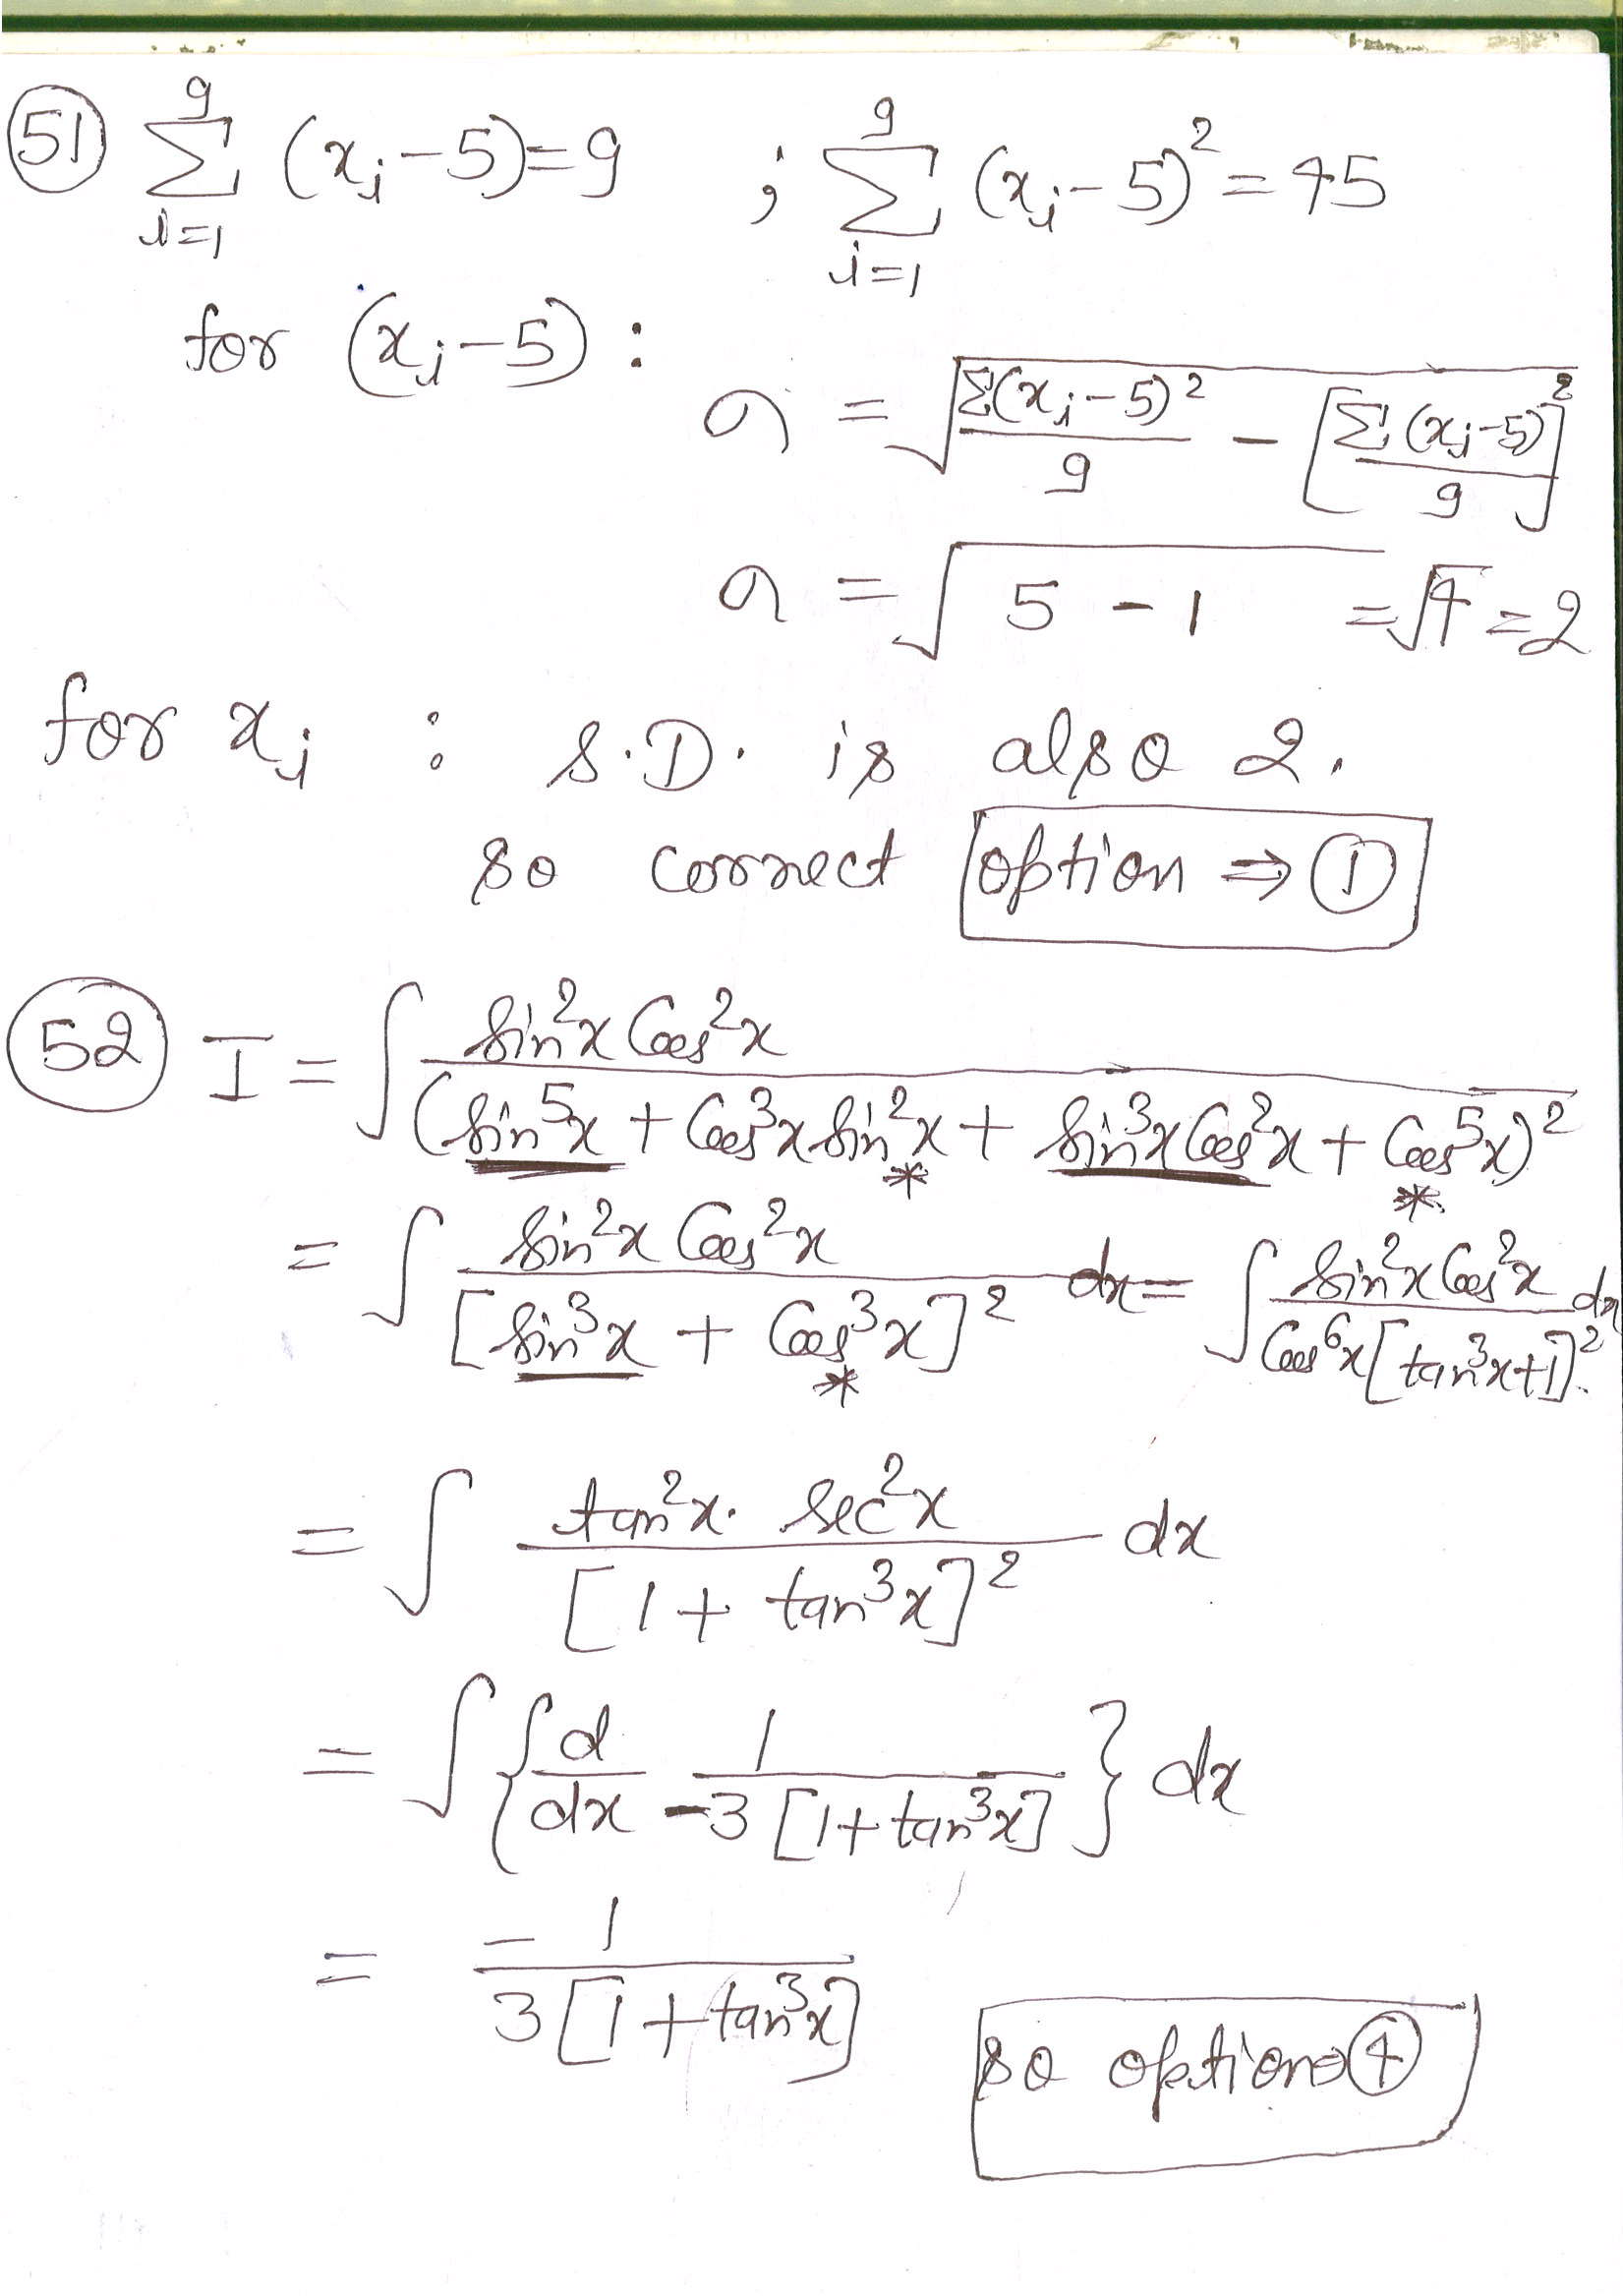 51 ∑_{i=1}^{9} (x_i - 5) = 9 ; ∑_{i=1}^{9} (x_i - 5)^2 = 45
for (x_i - 5) :
σ = √( ∑(x_i - 5)^2 / 9 - [ ∑(x_i - 5) / 9 ]^2 )
σ = √(5 - 1) = √4 = 2
for x_i : S.D. is also 2.
so correct option ⇒ 1
52 I = ∫ sin^2x Cos^2x / (sin^5x + Cos^3x sin^2x + sin^3x Cos^2x + Cos^5x)^2
= ∫ sin^2x Cos^2x / [sin^3x + Cos^3x]^2 dx = ∫ sin^2x Cos^2x / Cos^6x [tan^3x + 1]^2 dx
= ∫ tan^2x. sec^2x / [1 + tan^3x]^2 dx
= ∫ { d/dx 1 / -3[1 + tan^3x] } dx
= -1 / 3[1 + tan^3x]
so option 4